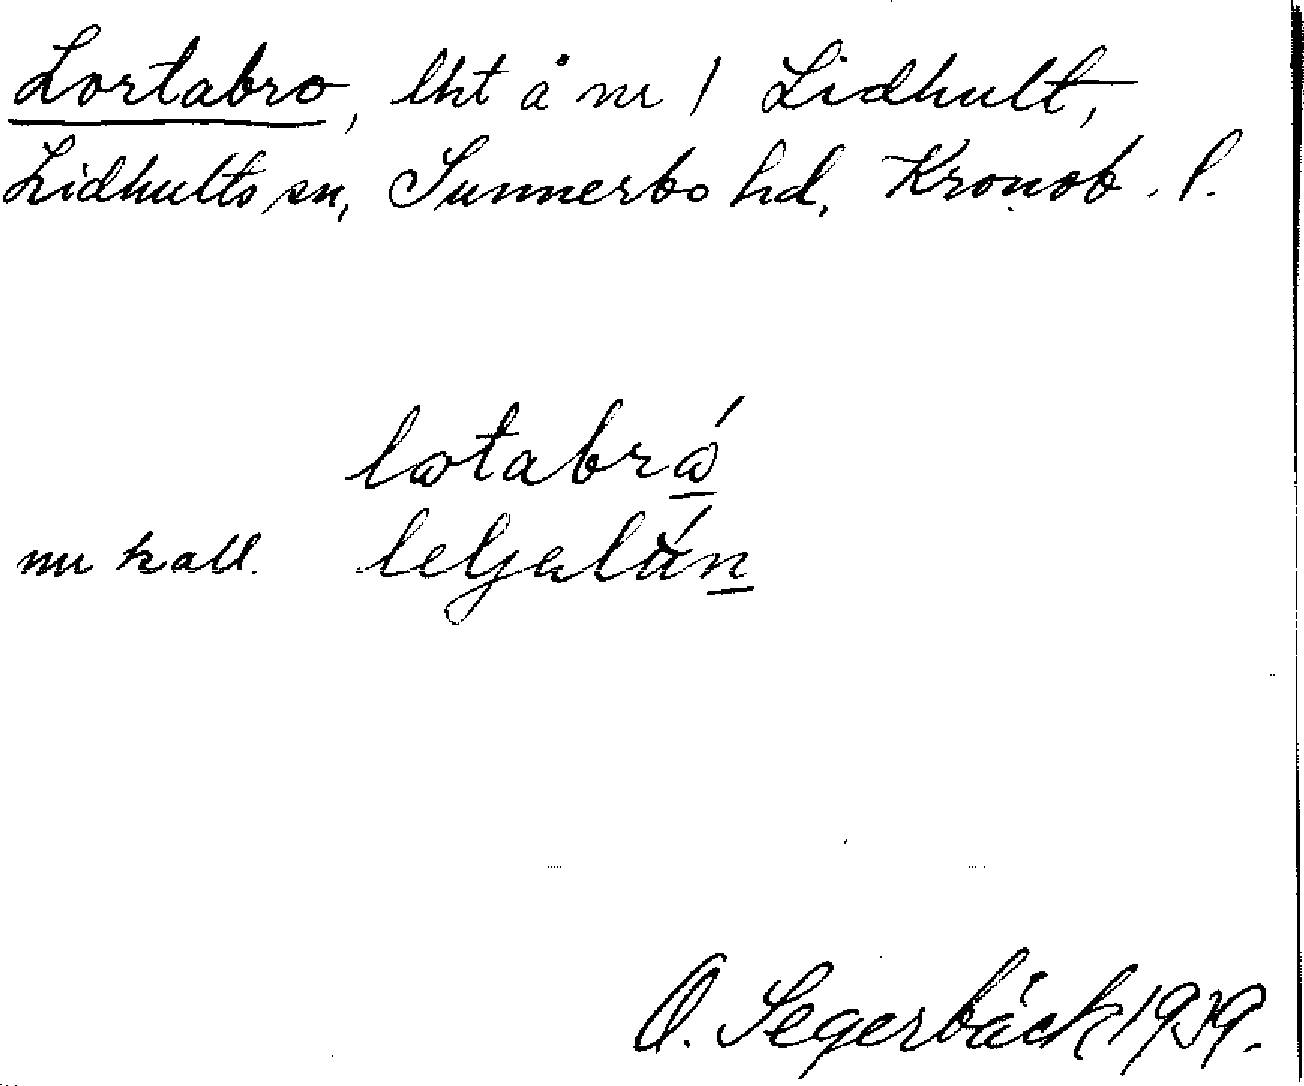 Lortabro, lht å nr 1 Lidhult,
Lidhults sn, Sunnerbo hd, Kronob. l.
nu kall.
O. Segerbäck 1939.